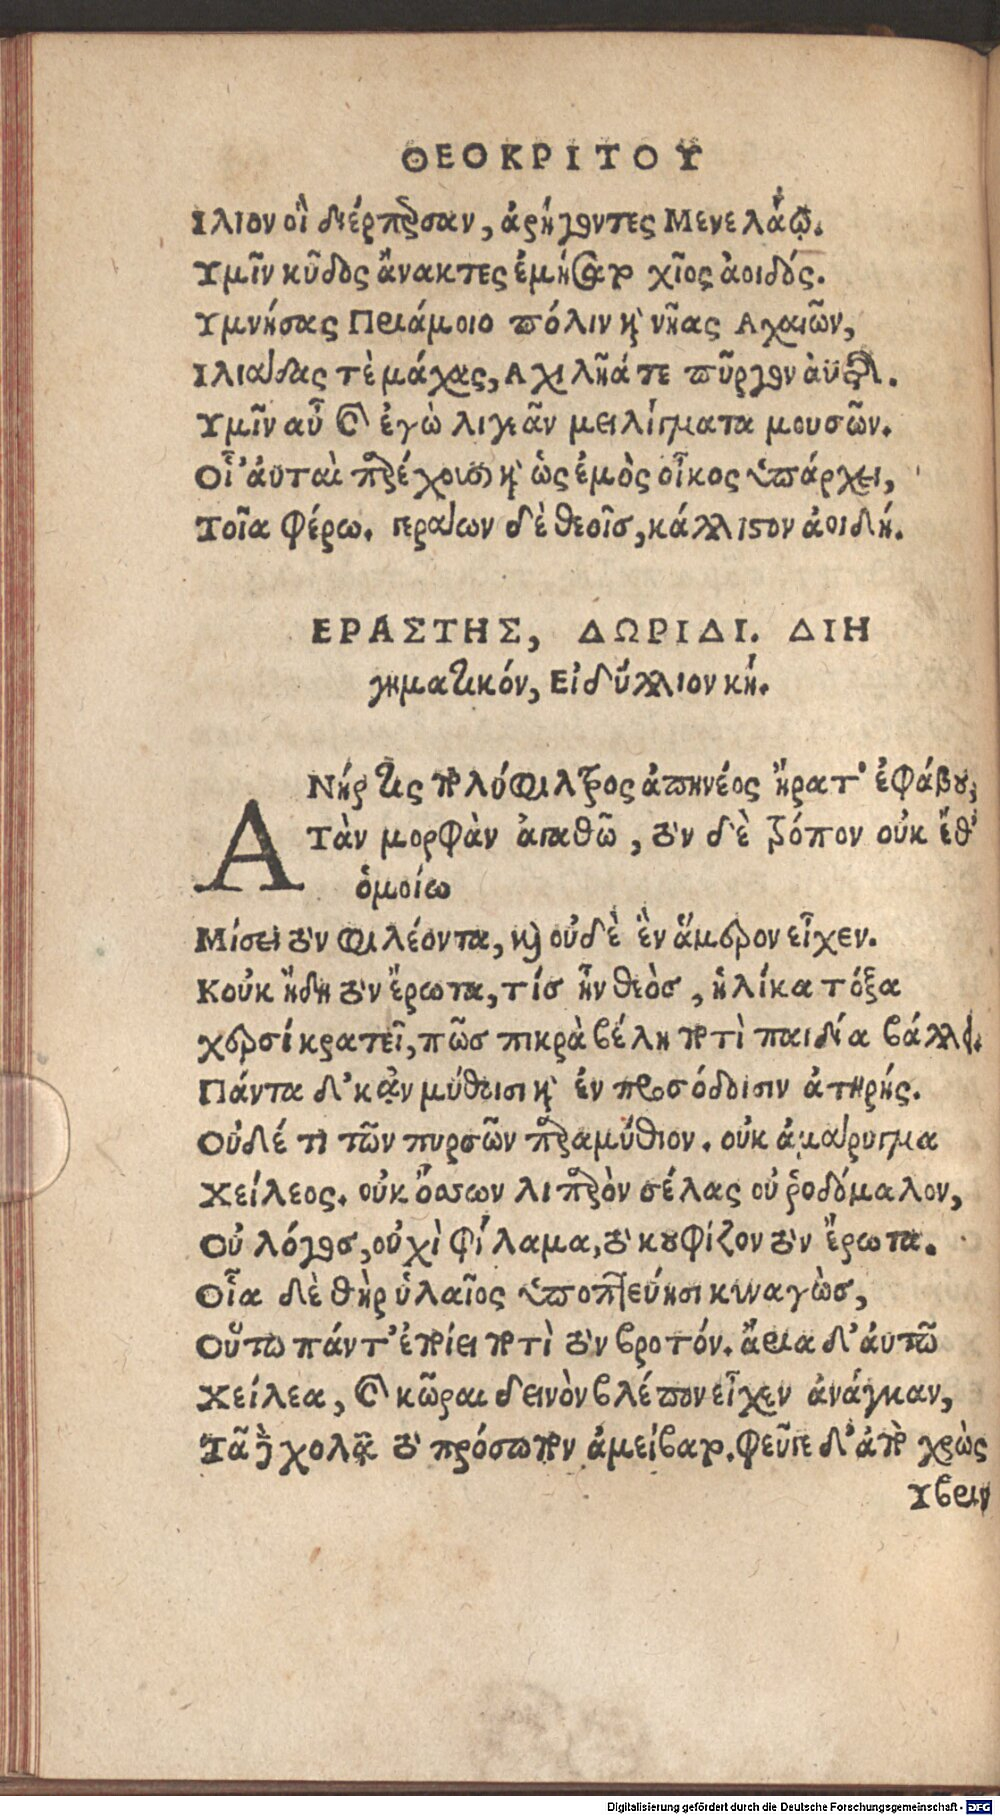 ΘΕΟΚΡΙΤΟΥ
Ιλιον οἳ διέρπασαν, ἀρήγοντες Μενελάῳ.
Υμῖν κῦδος ἄνακτες ἐμήσατο χῖος ἀοιδός.
Υμνήσας Πριάμοιο πόλιν καὶ νῆας Αχαιῶν,
Ιλιάδας τὲ μάχας, Αχιλῆά τε πῦργον ἀϋτῆς.
Υμῖν αὖ καὶ ἐγὼ λιγεᾶν μειλίγματα μουσῶν.
Οἷ' ἀυταὶ παρέχουσι καὶ ὡς ἐμὸς οἶκος ὑπάρχει,
Τοῖα φέρω. γεράων δὲ θεοῖσ, κάλλιστον ἀοιδή.
ΕΡΑΣΤΗΣ, ΔΩΡΙΔΙ. ΔΙΗ
γηματικόν, Εἰδύλλιον κή.
ΑΝήρ τις πολύφιλτρος ἀπηνέος ἤρατ' ἐφάβου,
Τὰν μορφὰν ἀγαθῶ, τὸν δὲ τρόπον οὐκ ἔθ'
ὁμοίω
Μίσει τὸν φιλέοντα, καὶ οὐδὲ ἓν ἅμερον εἶχεν.
Κοὐκ ἤδη τὸν ἔρωτα, τίσ ἦν θεὸσ, ἡλίκα τόξα
χερσί κρατεῖ, πῶσ πικρὰ βέλη ποτὶ παιδία βάλλει.
Πάντα δ' κἀν μύθοισι καὶ ἐν προσόδοισιν ἀτηρής.
Οὐδέ τι τῶν πυρσῶν παραμύθιον. οὐκ ἀμάρυγμα
Χείλεος. οὐκ ὄσσων λιπαρὸν σέλας οὐ ῥοδόμαλον,
Οὐ λόγοσ, οὐχὶ φίλαμα, τὸ κουφίζον τὸν ἔρωτα.
Οἷα δὲ θὴρ ὑλαῖος ὑποπτεύησι κυναγὼσ,
Οὕτω πάντ' ἐποίει ποτὶ τὸν βροτόν. ἄγρια δ' ἀυτῶ
Χείλεα, καὶ κῶραι δεινὸν βλέπον εἶχεν ἀνάγκαν,
Τᾶ δὲ χολᾶ τὸ πρόσωπον ἀμείβετο. φεῦγε δ' ἀπὸ χρὼς
Υβριν
Digitalisierung gefördert durch die Deutsche Forschungsgemeinschaft - DFG